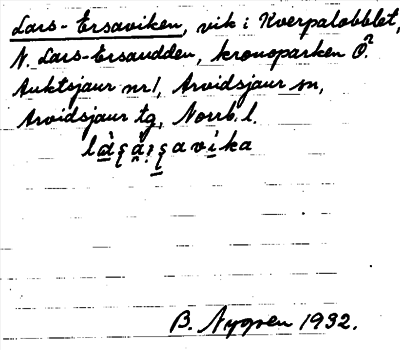 Lars-Ersaviken, vik i Kverpalobblet,
N. Lars-Ersaudden, kronoparken Ö².
Auktsjaur nr 1, Arvidsjaur sn,
Arvidsjaur tg, Norrb. l.
B. Nygren 1932.